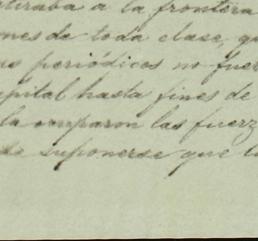 atiraba a la frontera
ones de toda clase, qu
us periódicos no fuer
apital hasta fines de
la ocuparon las fuerz
de suponerse que la